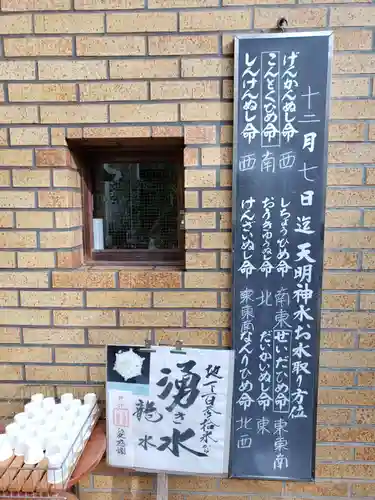 十二月七日迄天明神水お水取り方位
げんかんぬし命 西
こんとくひめ命 南
しんげんぬし命 西
しちょうひめ命 南東
おうきゅうぬし命 北
かんざいぬし命 東東南
せいだひめ命 東東南
だいかいぬし命 東
なくりひめ命 北西
湧き水
龍水